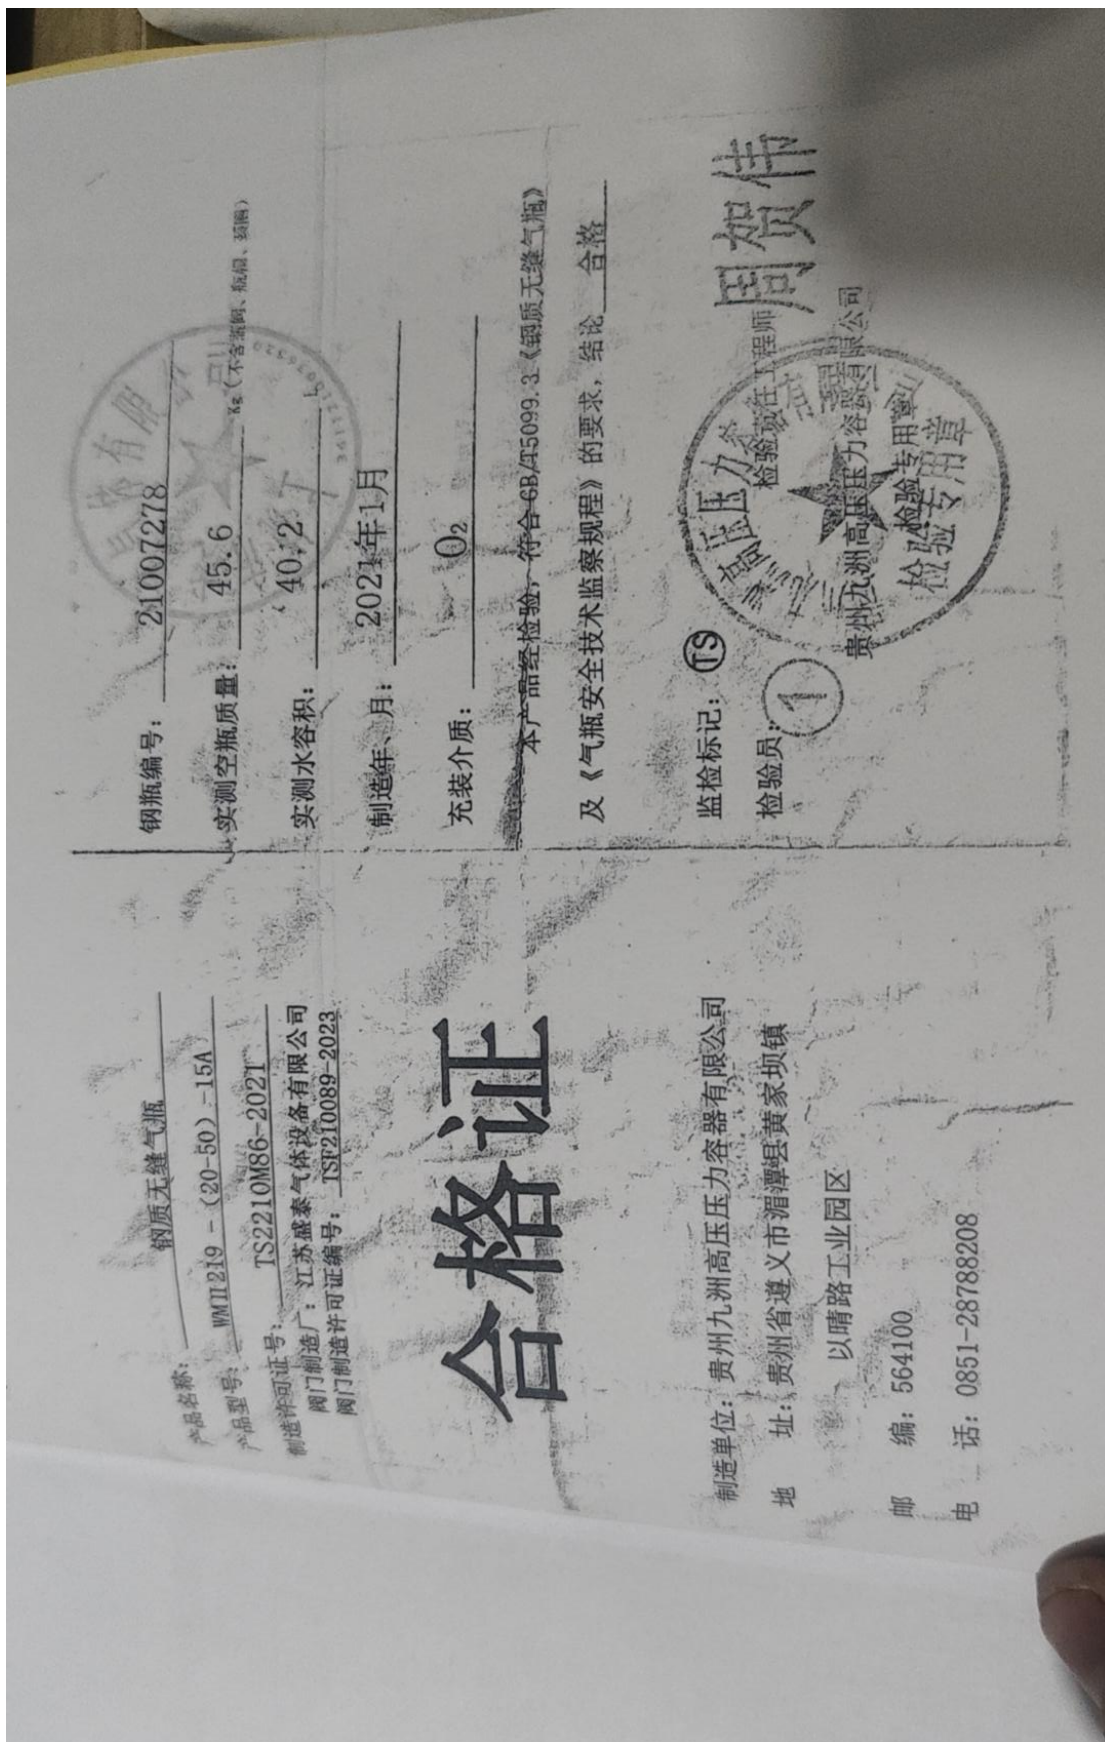 产品名称： 钢质无缝气瓶
产品型号： WMⅡ219-(20-50)-15A
制造许可证号： TS2210M86-2021
阀门制造厂：江苏盛泰气体设备有限公司
阀门制造许可证编号： TSF210089-2023
合格证
制造单位：贵州九洲高压压力容器有限公司
地 址：贵州省遵义市湄潭县黄家坝镇
以晴路工业园区
邮 编：564100
电 话：0851-28788208
钢瓶编号： 21007278
实测空瓶质量： 45.6 Kg（不含瓶阀、瓶帽、颈圈）
实测水容积： 40.2 L
制造年、月： 2021年1月
充装介质： O₂
本产品经检验，符合GB/T5099.3《钢质无缝气瓶》
及《气瓶安全技术监察规程》的要求，结论 合格
监检标记： TS
检验员： 1 检验责任工程师 周贺伟
贵州九洲高压压力容器有限公司
检验专用章
高压压力
检验专用章
有限